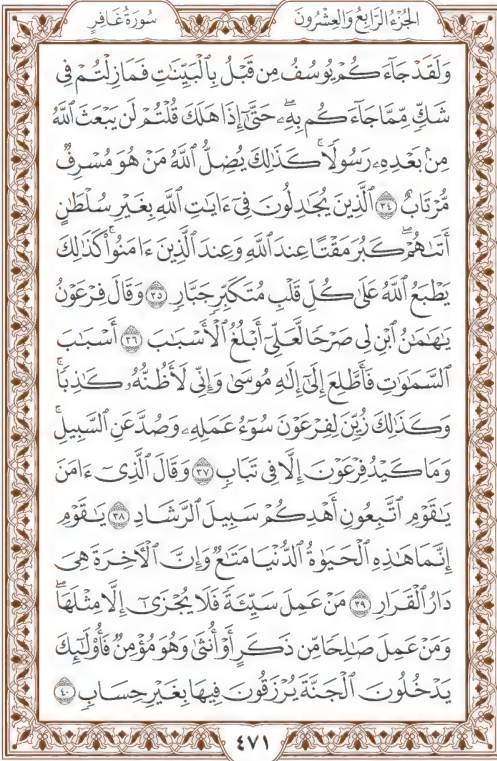 الجزء الرابع والعشرون
سورة غافر
وَلَقَدْ جَآءَكُمْ يُوسُفُ مِن قَبْلُ بِٱلْبَيِّنَٰتِ فَمَا زِلْتُمْ فِى
شَكٍّ مِّمَّا جَآءَكُم بِهِۦۖ حَتَّىٰٓ إِذَا هَلَكَ قُلْتُمْ لَن يَبْعَثَ ٱللَّهُ
مِنۢ بَعْدِهِۦ رَسُولًاۚ كَذَٰلِكَ يُضِلُّ ٱللَّهُ مَنْ هُوَ مُسْرِفٌ
مُّرْتَابٌ ٣٤ ٱلَّذِينَ يُجَٰدِلُونَ فِىٓ ءَايَٰتِ ٱللَّهِ بِغَيْرِ سُلْطَٰنٍ
أَتَىٰهُمْۖ كَبُرَ مَقْتًا عِندَ ٱللَّهِ وَعِندَ ٱلَّذِينَ ءَامَنُوا۟ۚ كَذَٰلِكَ
يَطْبَعُ ٱللَّهُ عَلَىٰ كُلِّ قَلْبِ مُتَكَبِّرٍ جَبَّارٍ ٣٥ وَقَالَ فِرْعَوْنُ
يَٰهَٰمَٰنُ ٱبْنِ لِى صَرْحًا لَّعَلِّىٓ أَبْلُغُ ٱلْأَسْبَٰبَ ٣٦ أَسْبَٰبَ
ٱلسَّمَٰوَٰتِ فَأَطَّلِعَ إِلَىٰٓ إِلَٰهِ مُوسَىٰ وَإِنِّى لَأَظُنُّهُۥ كَٰذِبًاۚ
وَكَذَٰلِكَ زُيِّنَ لِفِرْعَوْنَ سُوٓءُ عَمَلِهِۦ وَصُدَّ عَنِ ٱلسَّبِيلِۚ
وَمَا كَيْدُ فِرْعَوْنَ إِلَّا فِى تَبَابٍ ٣٧ وَقَالَ ٱلَّذِىٓ ءَامَنَ
يَٰقَوْمِ ٱتَّبِعُونِ أَهْدِكُمْ سَبِيلَ ٱلرَّشَادِ ٣٨ يَٰقَوْمِ
إِنَّمَا هَٰذِهِ ٱلْحَيَوٰةُ ٱلدُّنْيَا مَتَٰعٌ وَإِنَّ ٱلْءَاخِرَةَ هِىَ
دَارُ ٱلْقَرَارِ ٣٩ مَنْ عَمِلَ سَيِّئَةً فَلَا يُجْزَىٰٓ إِلَّا مِثْلَهَاۖ
وَمَنْ عَمِلَ صَٰلِحًا مِّن ذَكَرٍ أَوْ أُنثَىٰ وَهُوَ مُؤْمِنٌ فَأُو۟لَٰٓئِكَ
يَدْخُلُونَ ٱلْجَنَّةَ يُرْزَقُونَ فِيهَا بِغَيْرِ حِسَابٍ ٤٠
٤٧١